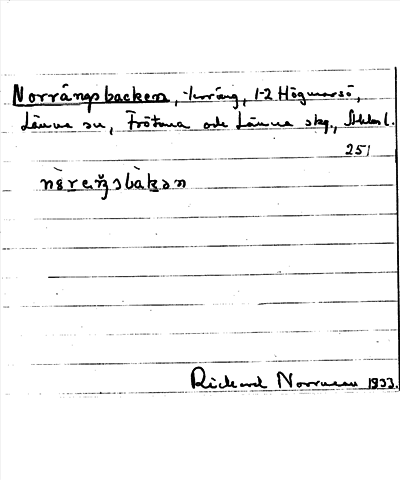 Norrängsbacken, terräng, 1-2 Högmarsö,
Länna sn, Frötuna och Länna skg., Sthlms l.
251
Richard Norrman 1933.